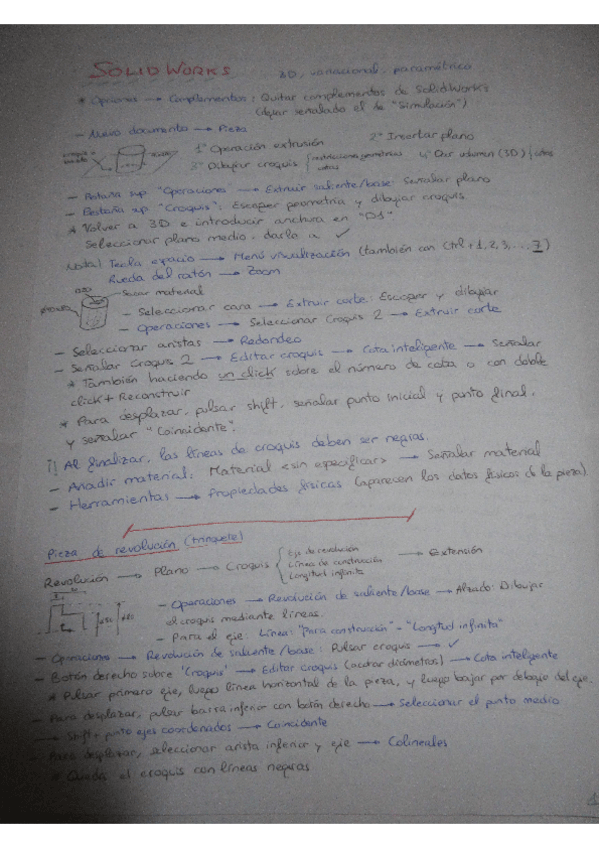 SOLIDWORKS 3D, variacional, paramétrico
* Opciones → Complementos: Quitar complementos de SolidWorks
(dejar señalado el de "Simulación")
- Nuevo documento → Pieza
1º Operación extrusión 2º Insertar plano
3º Dibujar croquis { restricciones geométricas 4º Dar volumen (3D) {
- Pestaña sup "Operaciones" → Extruir saliente/base: Señalar plano
- Pestaña sup "Croquis": Escoger geometría y dibujar croquis
* Volver a 3D e introducir anchura en "D1"
Seleccionar plano medio, darle a ✓
Nota) Tecla espacio → Menú visualización (también con Ctrl + 1, 2, 3, ... 7)
Rueda del ratón → Zoom
Sacar material
- Seleccionar cara → Extruir corte: Escoger y dibujar
- Operaciones → Seleccionar Croquis 2 → Extruir corte
- Seleccionar aristas → Redondeo
- Señalar Croquis 2 → Editar croquis → Cota inteligente → Señalar
* También haciendo un click sobre el número de cota o con doble
click + Reconstruir
* Para desplazar, pulsar shift, señalar punto inicial y punto final,
y señalar "Coincidente".
¡¡ Al finalizar, las líneas de croquis deben ser negras.
- Añadir material: Material <sin especificar> → Señalar material
- Herramientas → Propiedades físicas (aparecen los datos físicos de la pieza)
Pieza de revolución (trinquete)
Revolución → Plano → Croquis { Eje de revolución
Línea de construcción
Longitud infinita → Extensión
- Operaciones → Revolución de saliente/base → Alzado: Dibujar
el croquis mediante líneas.
- Para el eje: Línea: "Para construcción" - "Longitud infinita"
- Operaciones → Revolución de saliente/base: Pulsar croquis → ✓
- Botón derecho sobre 'Croquis' → Editar croquis (acotar diámetros) → Cota inteligente
* Pulsar primero eje, luego línea horizontal de la pieza, y luego bajar por debajo del eje.
- Para desplazar, pulsar barra inferior con botón derecho → Seleccionar el punto medio
- Shift + punto ejes coordenados → Coincidente
- Para desplazar, seleccionar arista inferior y eje → Colineales
* Queda el croquis con líneas negras